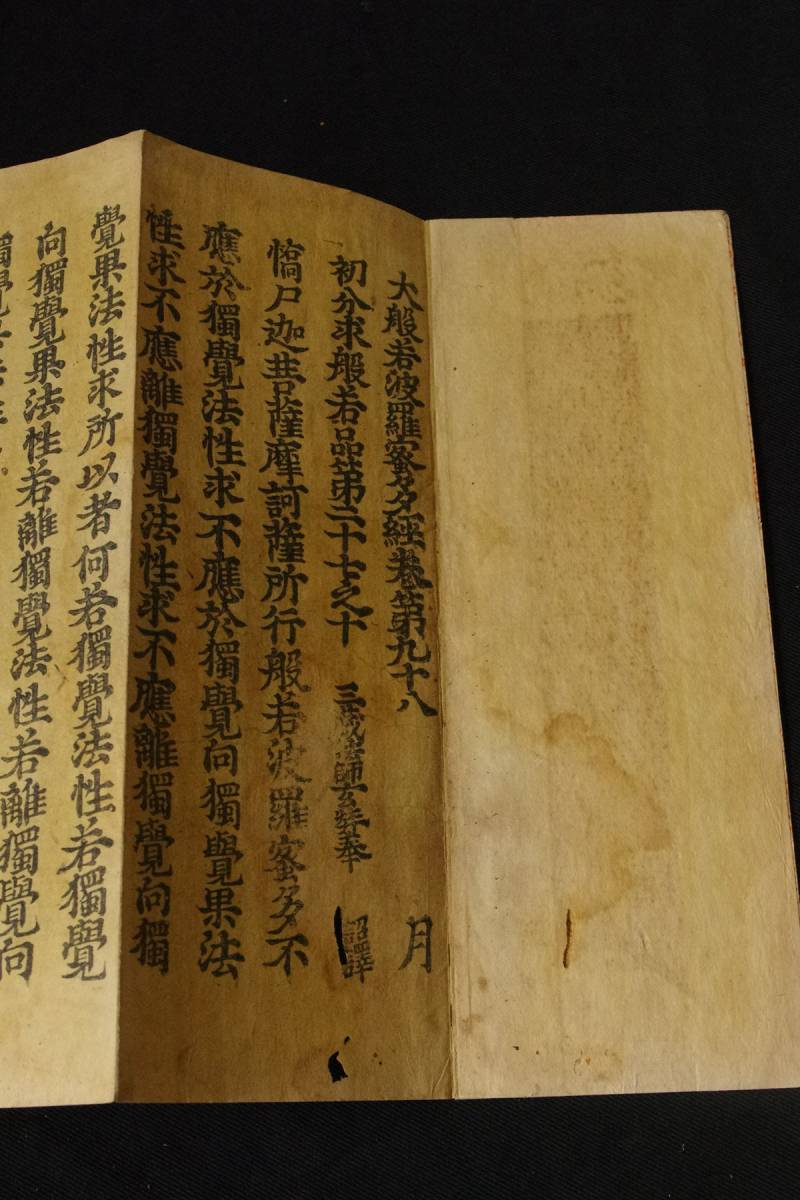 大般若波羅蜜多經卷第九十八 月
初分求般若品第二十七之十 三藏法師玄奘奉 詔譯
憍尸迦菩薩摩訶薩所行般若波羅蜜多不
應於獨覺法性求不應於獨覺向獨覺果法
性求不應離獨覺法性求不應離獨覺向獨
覺果法性求所以者何若獨覺法性若獨覺
向獨覺果法性若離獨覺法性若離獨覺向